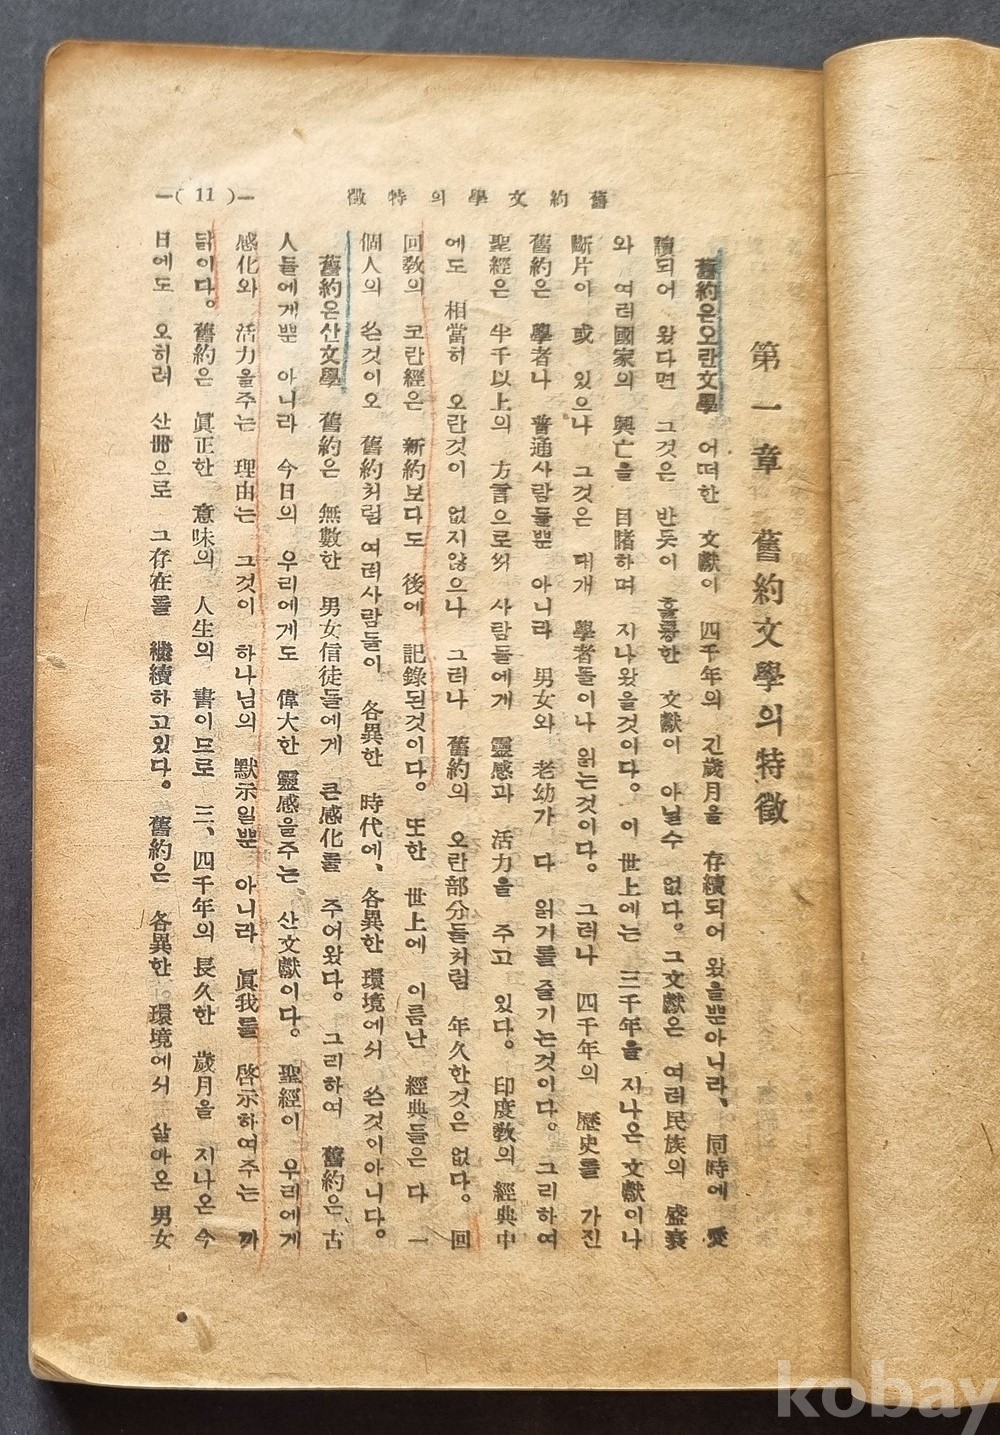 舊約文學의特徵 —( 11 )—
第一章 舊約文學의特徵
舊約은오란文學 어떠한 文獻이 四千年의 긴歲月을 存續되어 왔을뿐아니라、 同時에 愛
讀되어 왔다면 그것은 반듯이 훌륭한 文獻이 아닐수 없다。그文獻은 여러民族의 盛衰
와 여러國家의 興亡을 目睹하며 지나왔을것이다。이 世上에는 三千年을 지나온 文獻이나
斷片이 或 있으나 그것은 대개 學者들이나 읽는것이다。그러나 四千年의 歷史를 가진
舊約은 學者나 普通사람들뿐 아니라 男女와 老幼가 다 읽기를 즐기는것이다。그리하여
聖經은 半千以上의 方言으로써 사람들에게 靈感과 活力을 주고 있다。印度敎의 經典中
에도 相當히 오란것이 없지않으나 그러나 舊約의 오란部分들처럼 年久한것은 없다。 回
回敎의 코란經은 新約보다도 後에 記錄된것이다。또한 世上에 이름난 經典들은 다 一
個人의 쓴것이오 舊約처럼 여러사람들이 各異한 時代에、各異한 環境에서 쓴것이아니다。
舊約은산文學 舊約은 無數한 男女信徒들에게 큰感化를 주어왔다。그리하여 舊約은 古
人들에게뿐 아니라 今日의 우리에게도 偉大한 靈感을주는 산文獻이다。聖經이 우리에게
感化와 活力을주는 理由는 그것이 하나님의 默示일뿐 아니라 眞我를 啓示하여주는 까
닭이다。舊約은 眞正한 意味의 人生의 書이므로 三、四千年의 長久한 歲月을 지나온 今
日에도 오히려 산冊으로 그存在를 繼續하고있다。舊約은 各異한 環境에서 살아온 男女
kobay